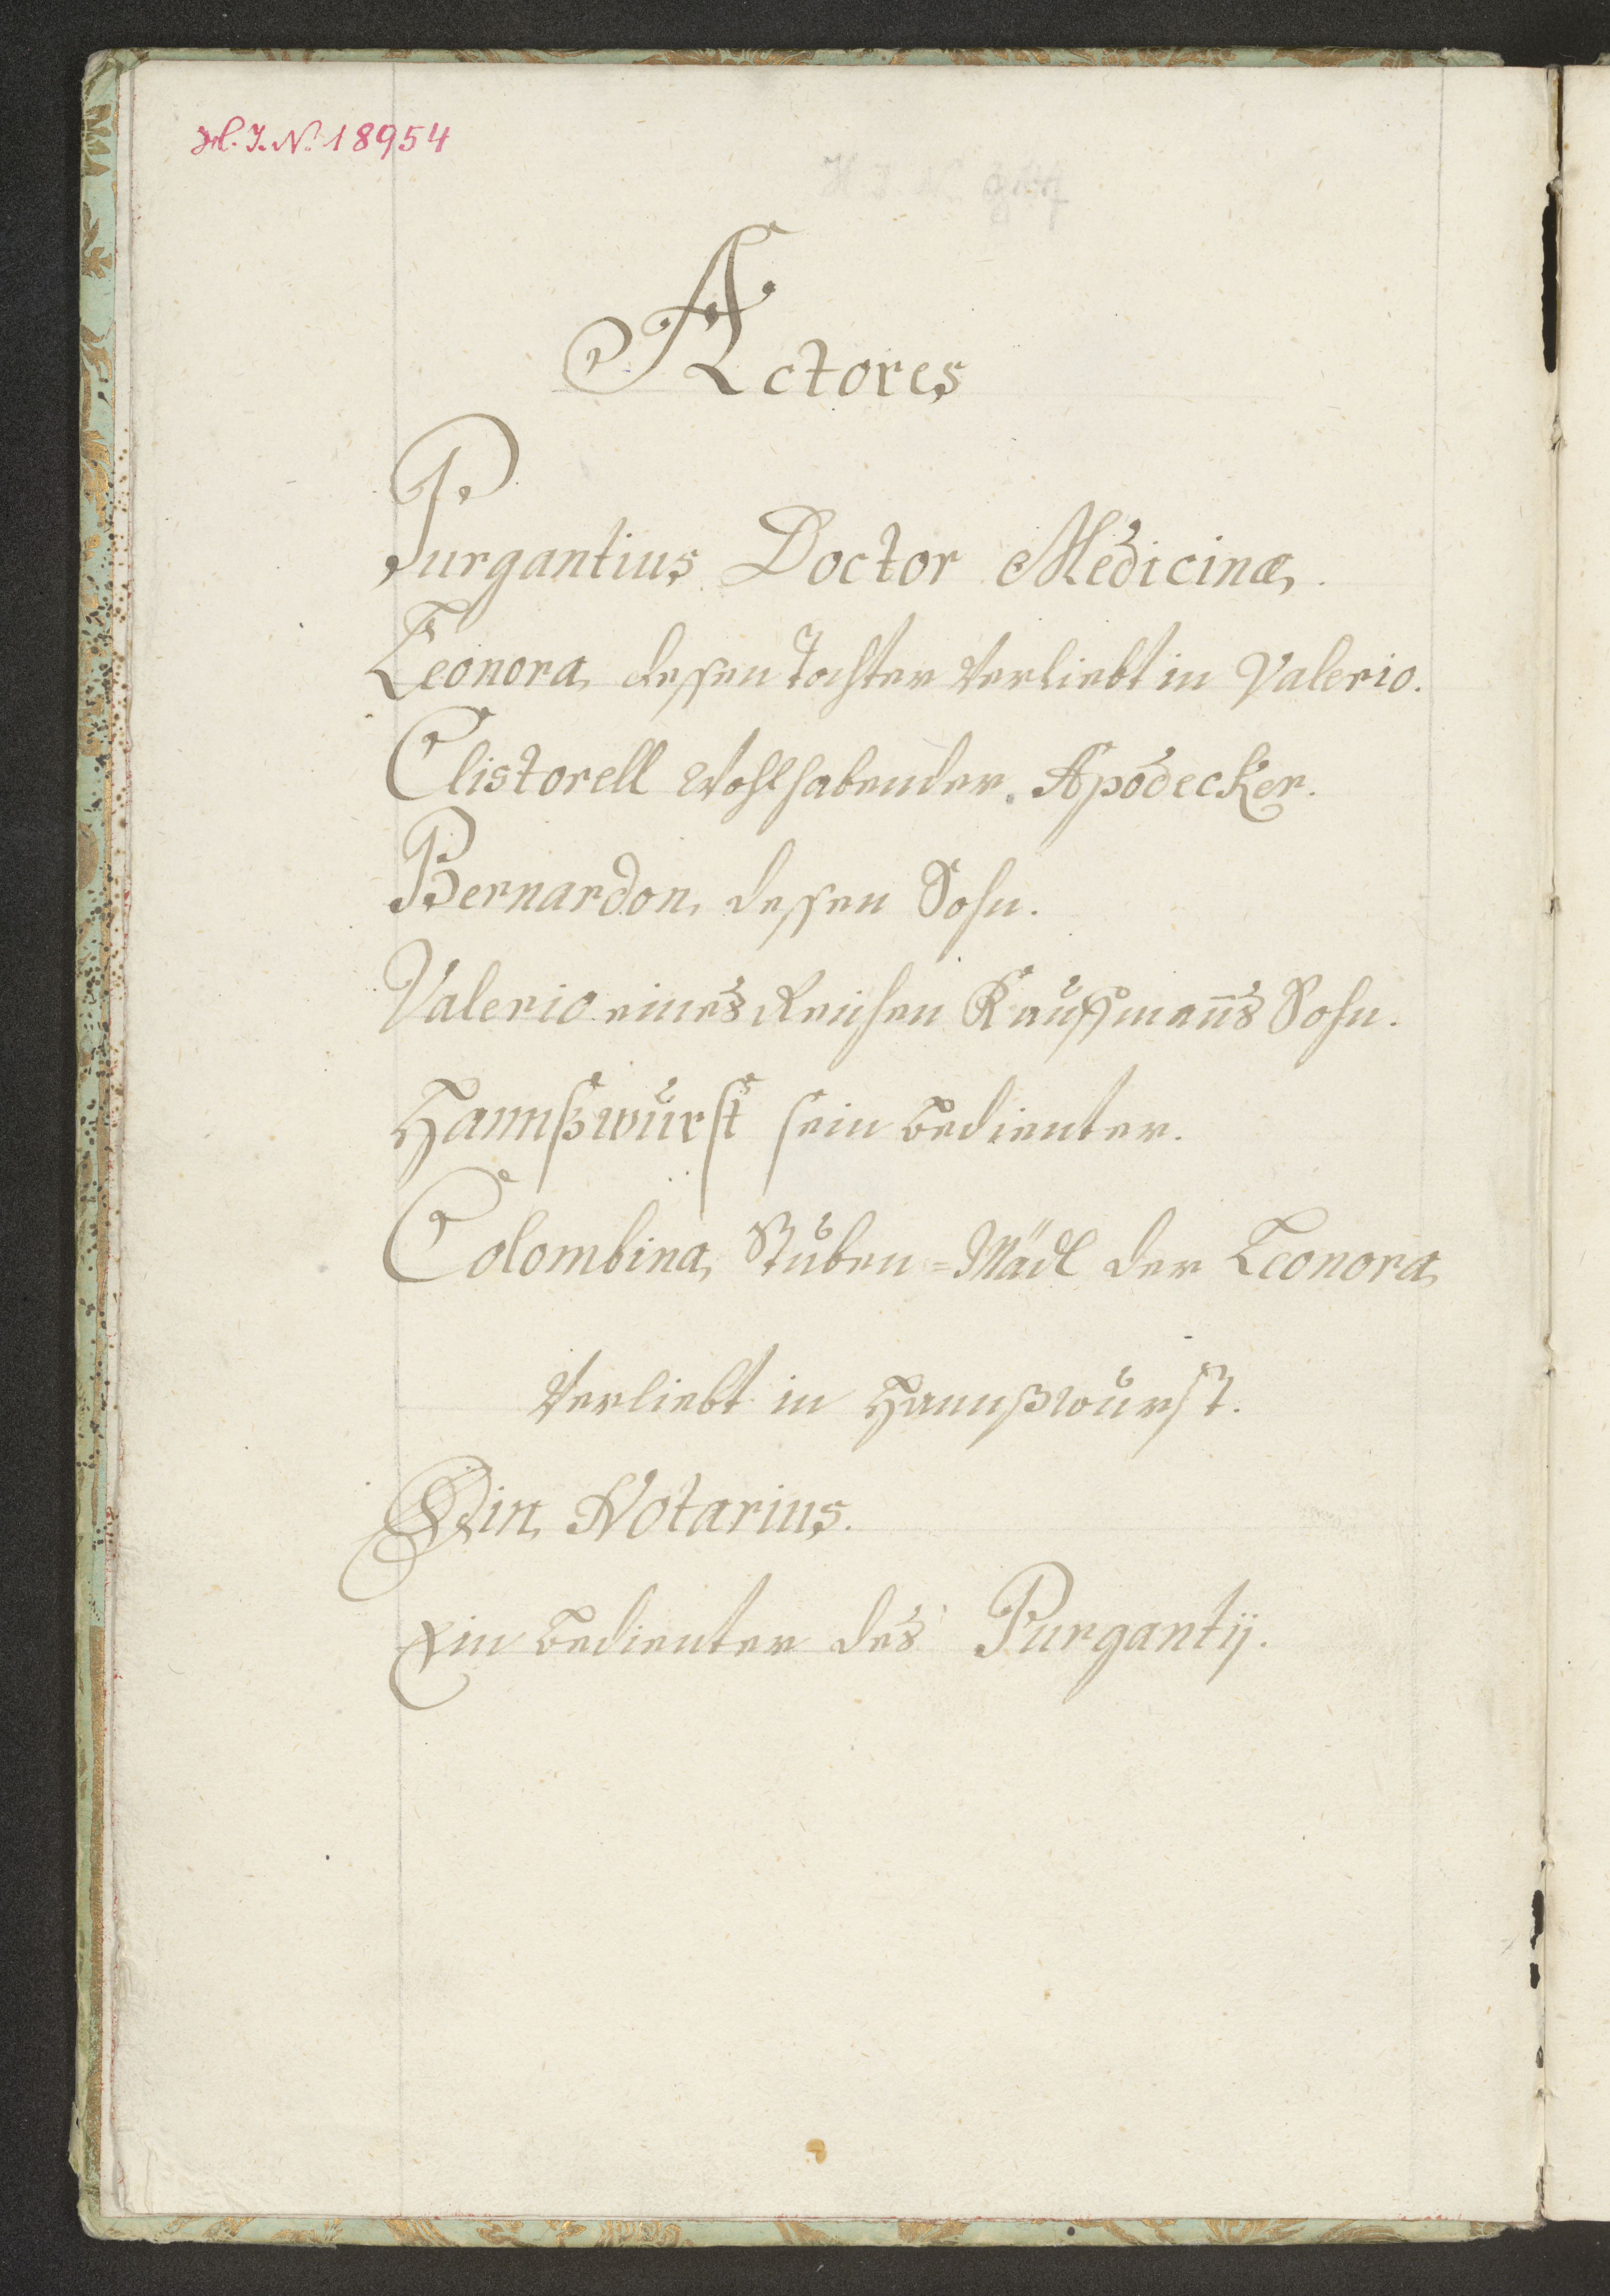 H. I. N. 18954
Actores
Purgantius Doctor Medicinæ.
Leonora dessen Tochter verliebt in Valerio.
Clistorell Wohlhabender Apodecker.
Bernardon, dessen Sohn.
Valerio eines Reichen Kauffmañs Sohn.
Hannßwurst sein bedienter.
Colombina, Stuben=Mädl der Leonora
verliebt in Hannßwurst.
Ein Notarius.
Ein bedienter des Purgantij.